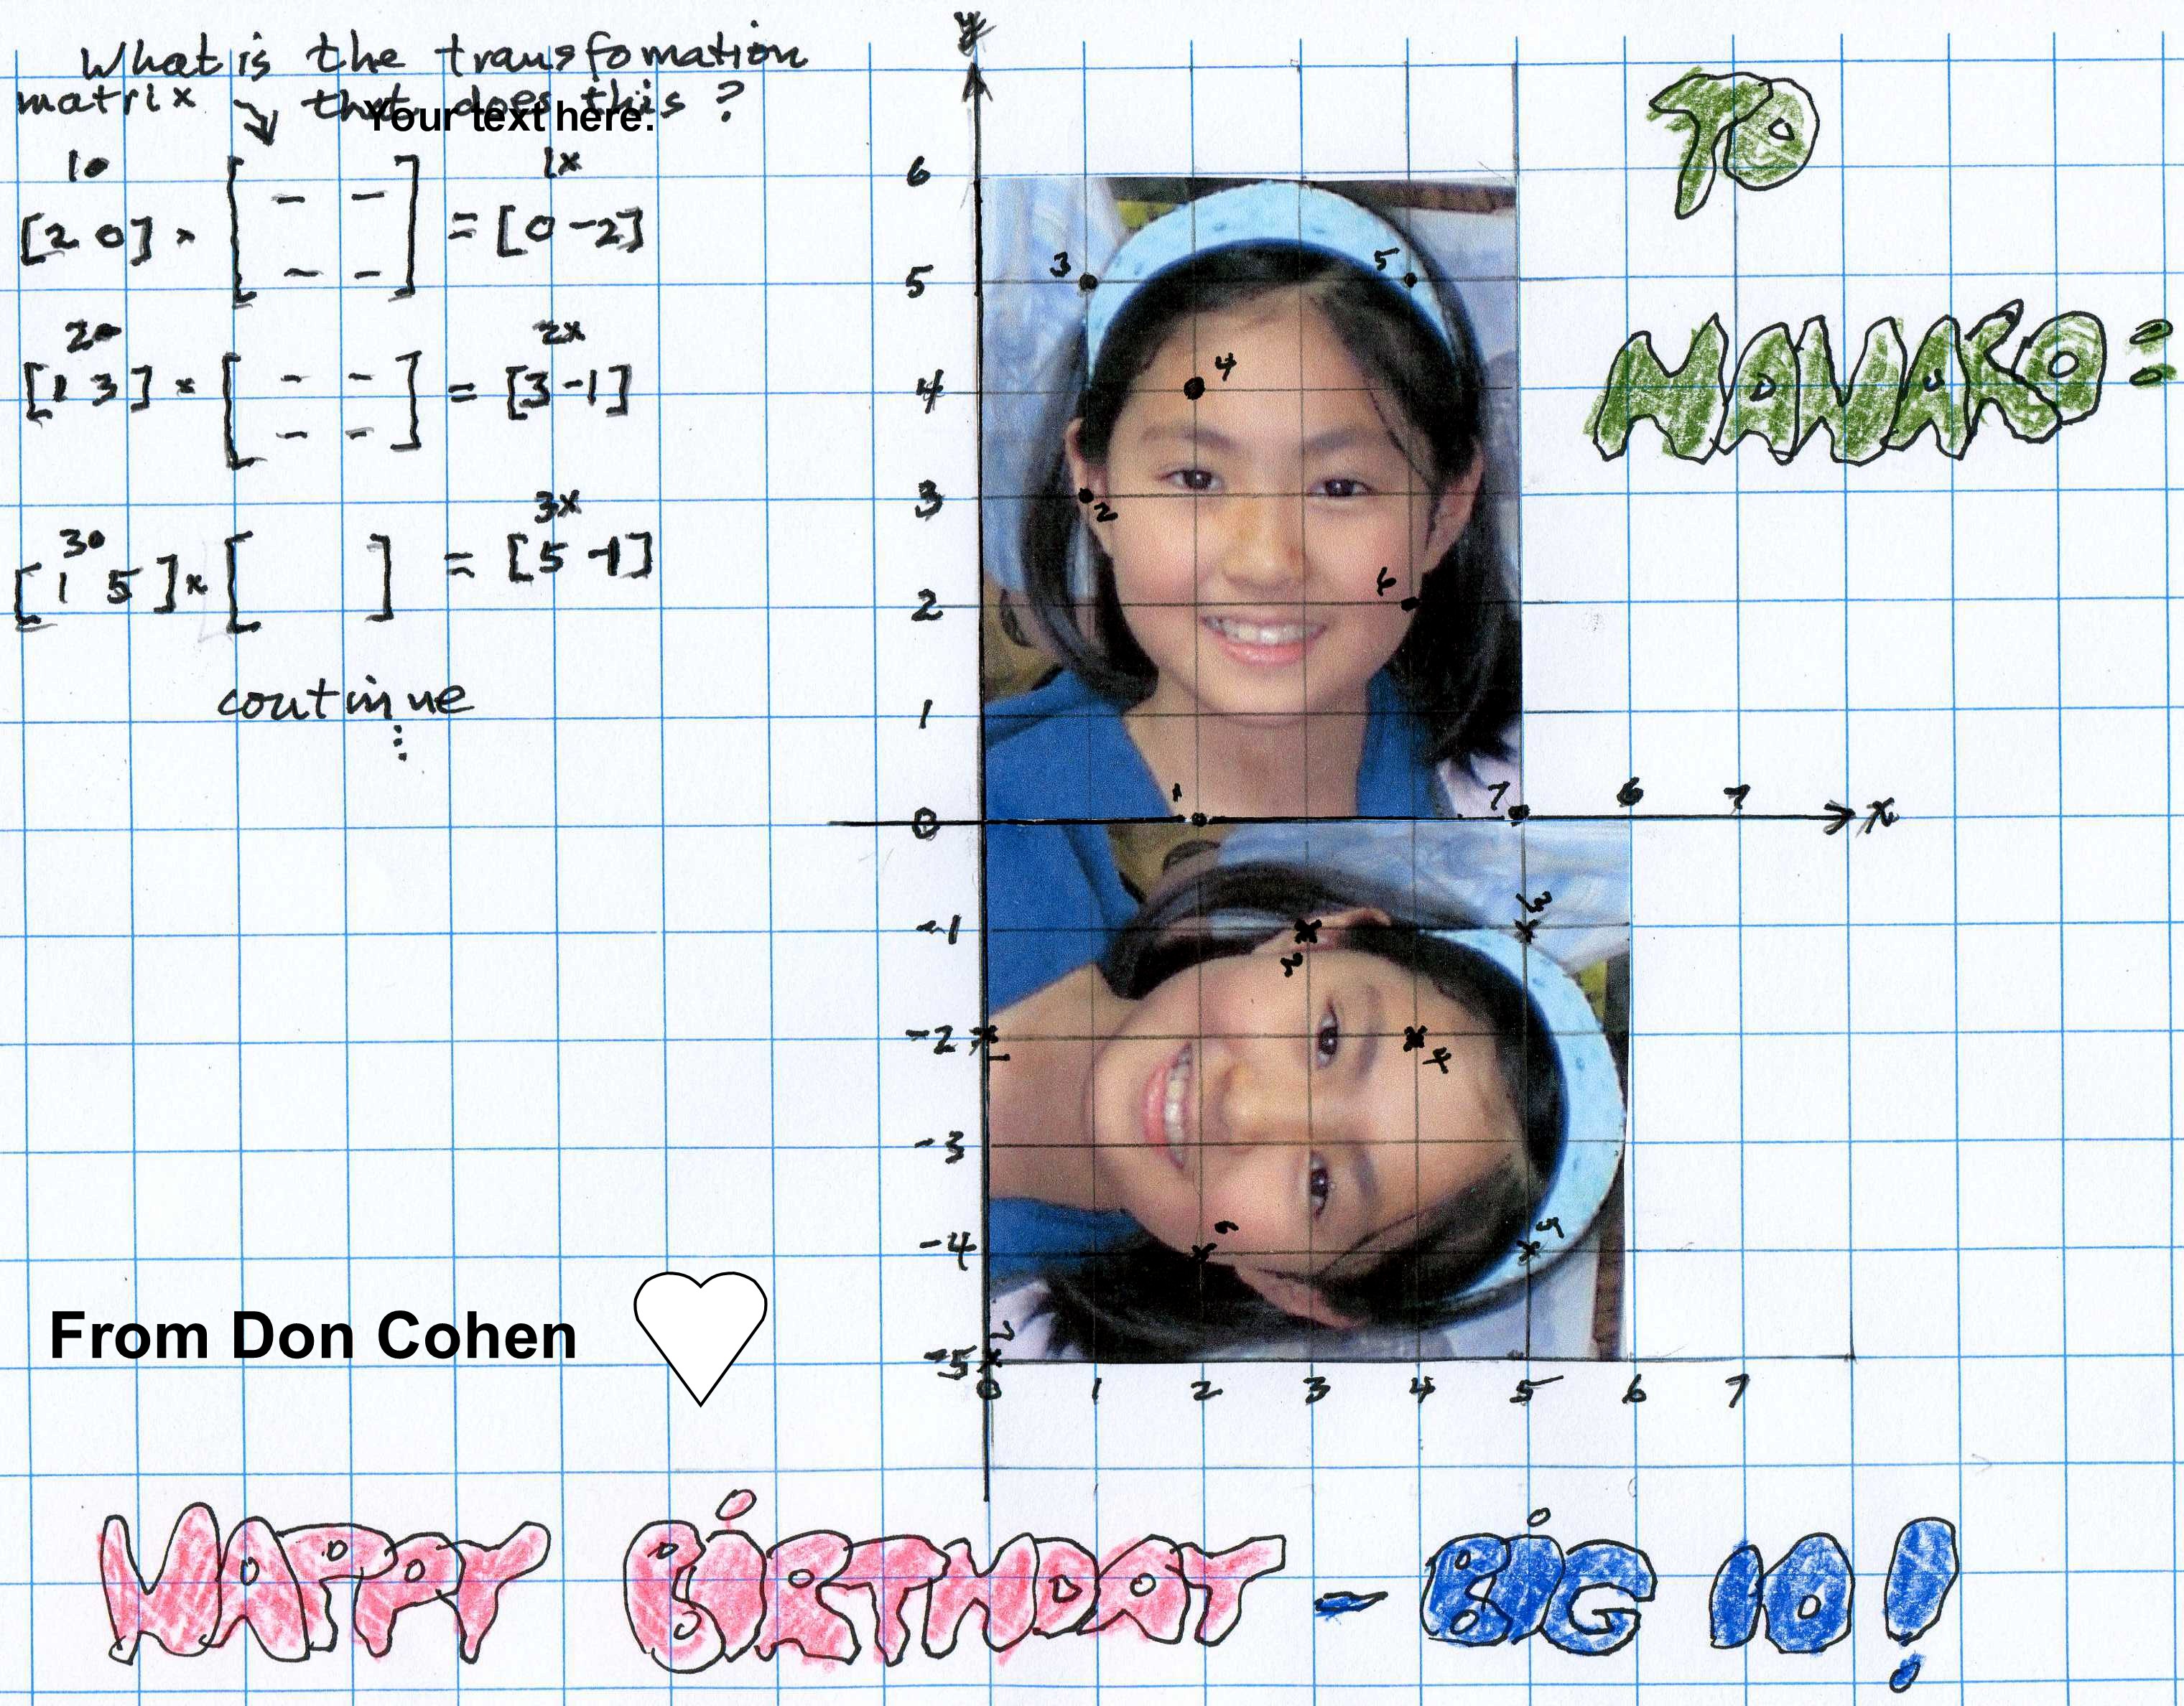 What is the transfomation
matrix ↘ that does this?
Your text here.
1•
1x
[2 0] × [– – – –] = [0 -2]
2•
2x
[1 3] × [– – – –] = [3 -1]
3•
3x
[1 5] × [ ] = [5 -1]
continue
⋮
y
6
5
4
3
2
1
0
-1
-2
-3
-4
-5
3
5
4
2
6
1
7
6
7
x
2
3
4
7
0 1 2 3 4 5 6 7
TO
MANAKO:
From Don Cohen
HAPPY BIRTHDAY - BIG 10!